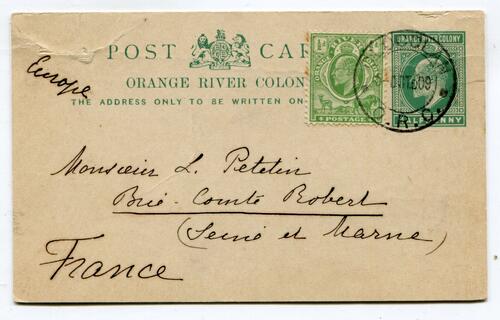 POST CAR
ORANGE RIVER COLON
THE ADDRESS ONLY TO BE WRITTEN ON
Europe
½d
POSTAGE
O.R.C.
ORANGE RIVER COLONY
HALFPENNY
Monsieur L. Petetin
Brie-Comte Robert
(Seine et Marne)
France